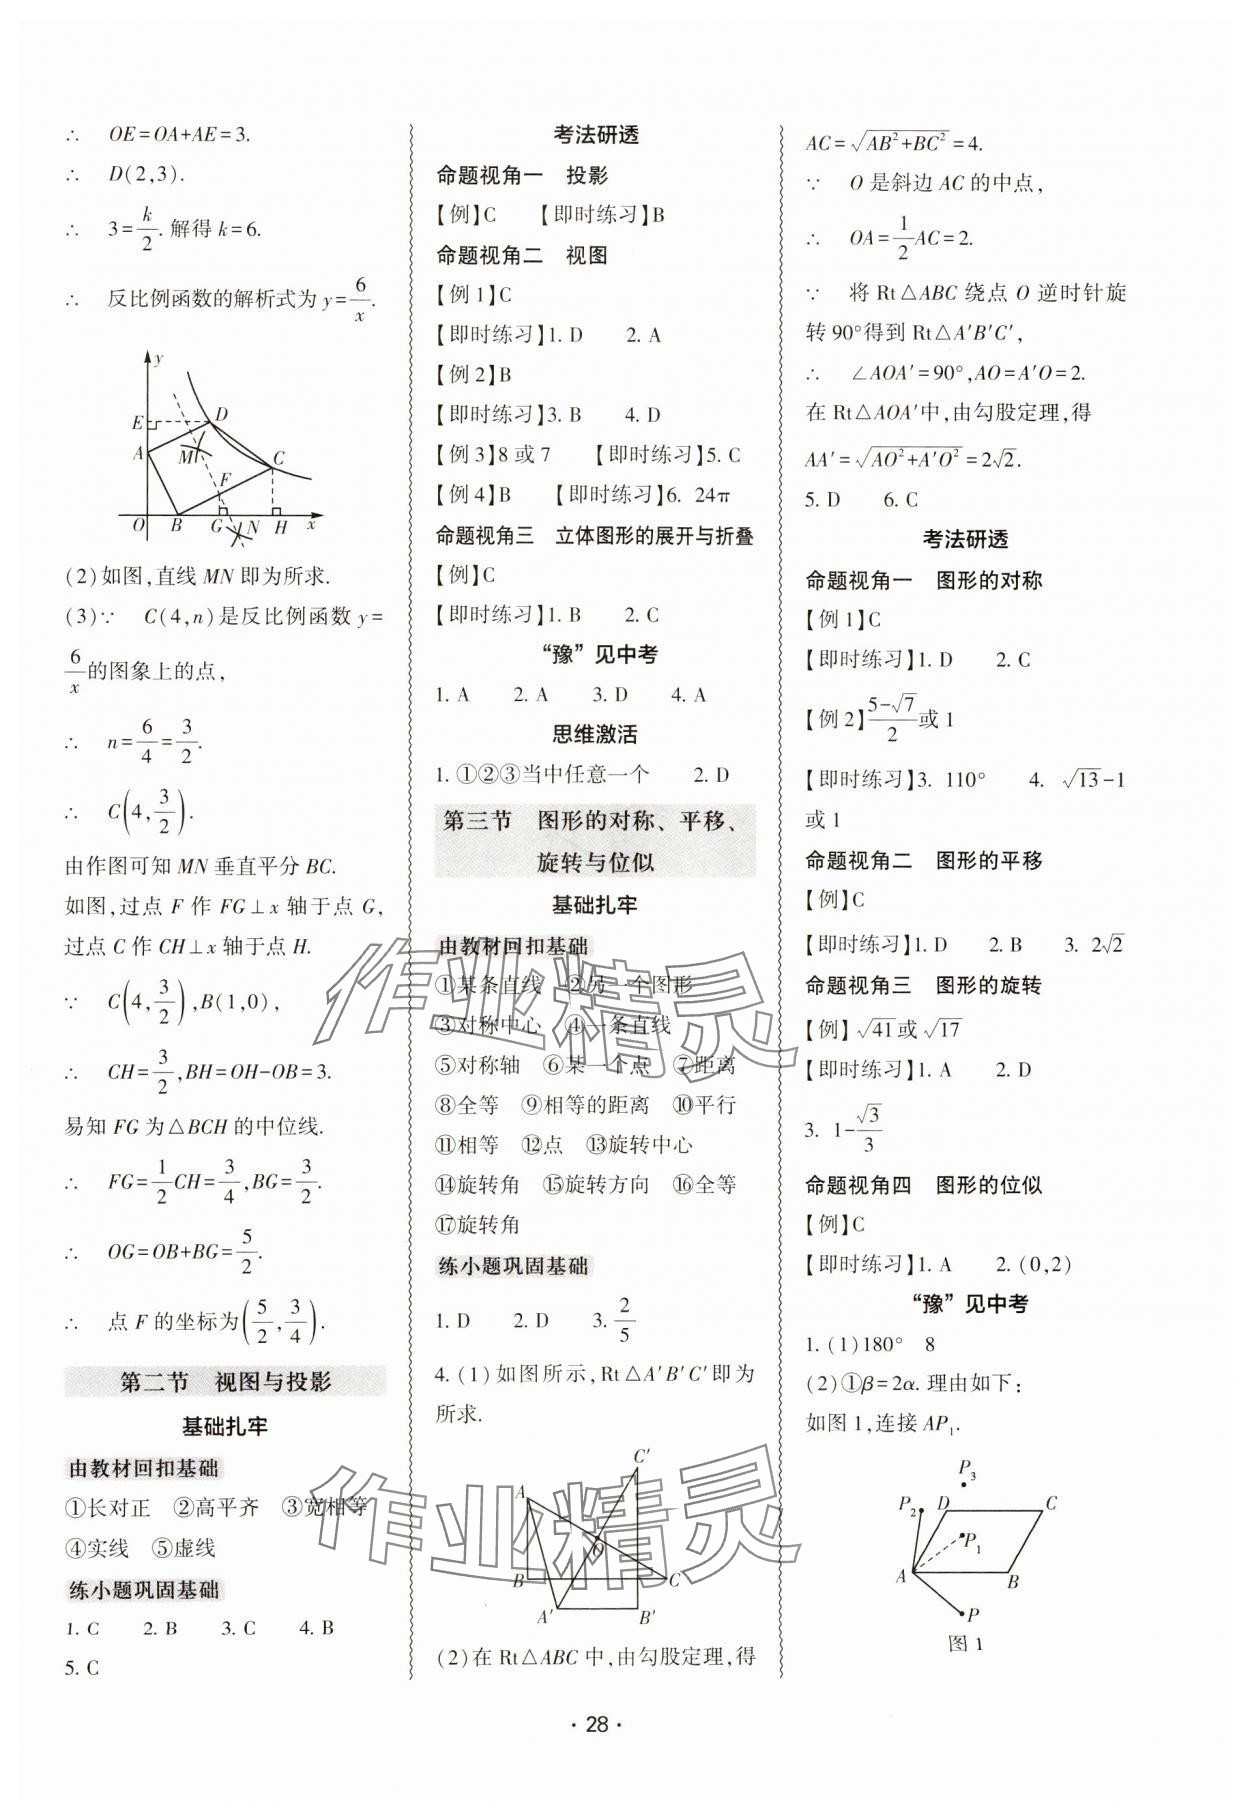 ∴ OE=OA+AE=3.
∴ D(2,3).
∴ 3=k/2. 解得 k=6.
∴ 反比例函数的解析式为 y=6/x.
y
E
D
A
M
C
F
O
B
G
N
H
x
(2)如图,直线 MN 即为所求.
(3)∵ C(4,n)是反比例函数 y=
6/x的图象上的点,
∴ n=6/4=3/2.
∴ C(4,3/2).
由作图可知 MN 垂直平分 BC.
如图,过点 F 作 FG⊥x 轴于点 G,
过点 C 作 CH⊥x 轴于点 H.
∵ C(4,3/2),B(1,0),
∴ CH=3/2,BH=OH-OB=3.
易知 FG 为△BCH 的中位线.
∴ FG=1/2CH=3/4,BG=3/2.
∴ OG=OB+BG=5/2.
∴ 点 F 的坐标为(5/2,3/4).
第二节 视图与投影
基础扎牢
由教材回扣基础
①长对正 ②高平齐 ③宽相等
④实线 ⑤虚线
练小题巩固基础
1. C 2. B 3. C 4. B
5. C
考法研透
命题视角一 投影
【例】C 【即时练习】B
命题视角二 视图
【例 1】C
【即时练习】1. D 2. A
【例 2】B
【即时练习】3. B 4. D
【例 3】8 或 7 【即时练习】5. C
【例 4】B 【即时练习】6. 24π
命题视角三 立体图形的展开与折叠
【例】C
【即时练习】1. B 2. C
“豫”见中考
1. A 2. A 3. D 4. A
思维激活
1. ①②③当中任意一个 2. D
第三节 图形的对称、平移、
旋转与位似
基础扎牢
由教材回扣基础
①某条直线 ②另一个图形
③对称中心 ④一条直线
⑤对称轴 ⑥某一个点 ⑦距离
⑧全等 ⑨相等的距离 ⑩平行
⑪相等 ⑫点 ⑬旋转中心
⑭旋转角 ⑮旋转方向 ⑯全等
⑰旋转角
练小题巩固基础
1. D 2. D 3. 2/5
4. (1)如图所示,Rt△A'B'C'即为
所求.
C'
A
O
B
C
A'
B'
(2)在 Rt△ABC 中,由勾股定理,得
AC=√(AB²+BC²)=4.
∵ O 是斜边 AC 的中点,
∴ OA=1/2AC=2.
∵ 将 Rt△ABC 绕点 O 逆时针旋
转 90°得到 Rt△A'B'C',
∴ ∠AOA'=90°,AO=A'O=2.
在 Rt△AOA'中,由勾股定理,得
AA'=√(AO²+A'O²)=2√2.
5. D 6. C
考法研透
命题视角一 图形的对称
【例 1】C
【即时练习】1. D 2. C
【例 2】(5-√7)/2或 1
【即时练习】3. 110° 4. √13-1
或 1
命题视角二 图形的平移
【例】C
【即时练习】1. D 2. B 3. 2√2
命题视角三 图形的旋转
【例】√41或√17
【即时练习】1. A 2. D
3. 1-√3/3
命题视角四 图形的位似
【例】C
【即时练习】1. A 2. (0,2)
“豫”见中考
1. (1)180° 8
(2)①β=2α. 理由如下:
如图 1,连接 AP₁.
P₃
P₂
D
C
P₁
A
B
P
图 1
· 28 ·
作业精灵
作业精灵